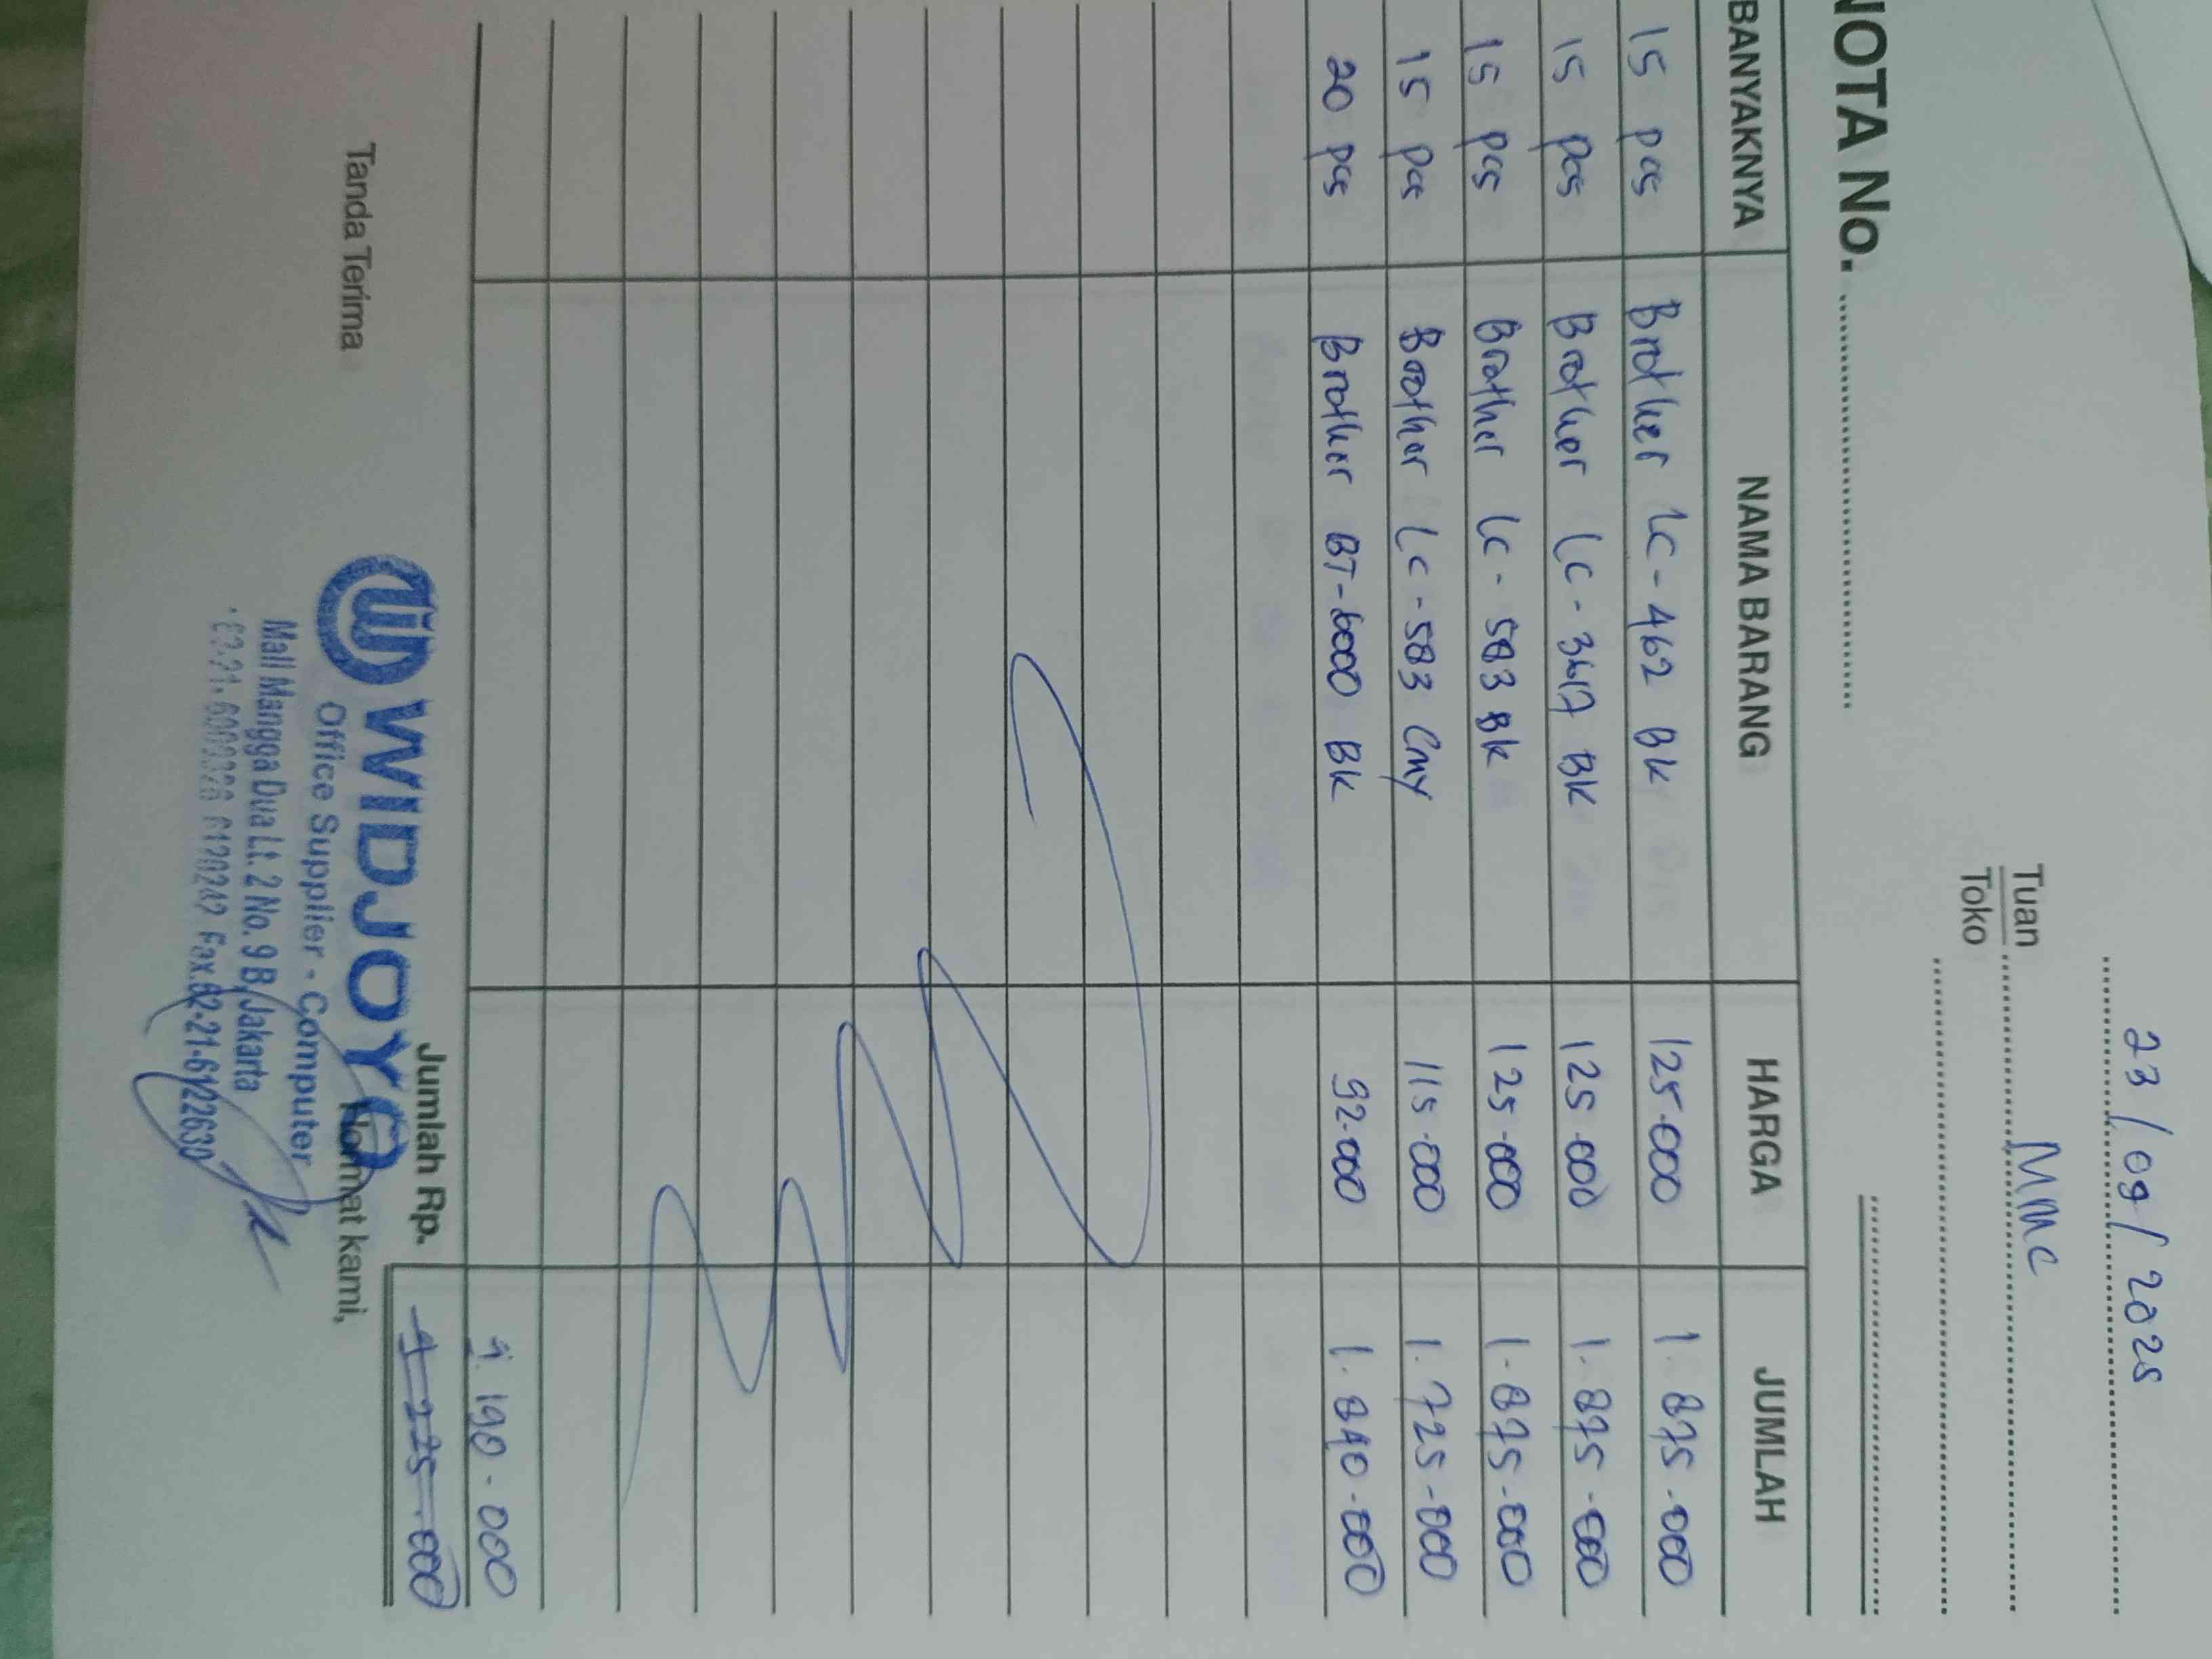 23/09/2025
Tuan MMC
Toko
NOTA No.
BANYAKNYA NAMA BARANG HARGA JUMLAH
15 pcs Brother LC-462 BK 125.000 1.875.000
15 pcs Brother LC-3617 BK 125.000 1.875.000
15 pcs Brother LC-583 BK 125.000 1.875.000
15 pcs Brother LC-583 CMY 115.000 1.725.000
20 pcs Brother BT-6000 BK 92.000 1.840.000
9.190.000
Jumlah Rp. 9.225.000
Tanda Terima Hormat kami,
WIDJOYO
Office Supplier - Computer
Mall Mangga Dua Lt. 2 No. 9 B, Jakarta
Fax.62-21-6122630